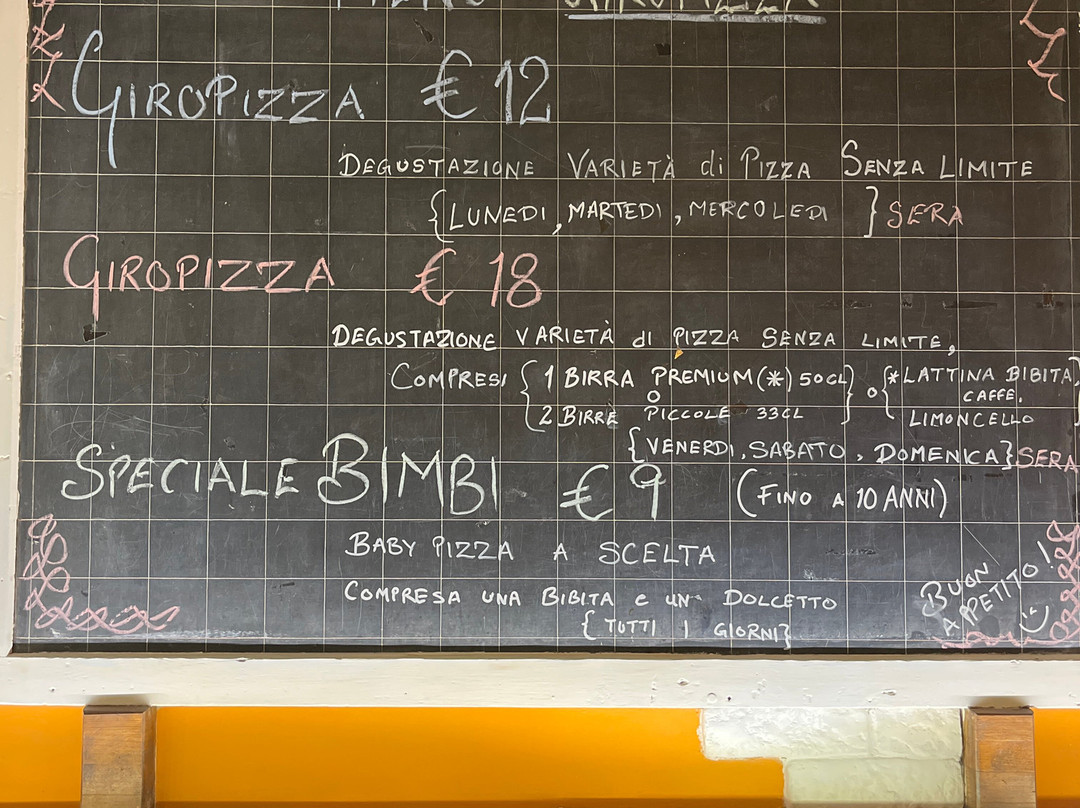 GIROPIZZA € 12
DEGUSTAZIONE VARIETÀ di PIZZA SENZA LIMITE
{LUNEDI, MARTEDI, MERCOLEDI} SERA
GIROPIZZA € 18
DEGUSTAZIONE VARIETÀ di PIZZA SENZA LIMITE,
COMPRESI {1 BIRRA PREMIUM (*) 50CL} o {*LATTINA BIBITA}
O
CAFFE,
2 BIRRE PICCOLE 33CL
LIMONCELLO
{VENERDI, SABATO, DOMENICA} SERA
SPECIALE BIMBI € 9 (FINO A 10 ANNI)
BABY PIZZA A SCELTA
COMPRESA UNA BIBITA e UN DOLCETTO
{TUTTI I GIORNI}
BUON
APPETITO!